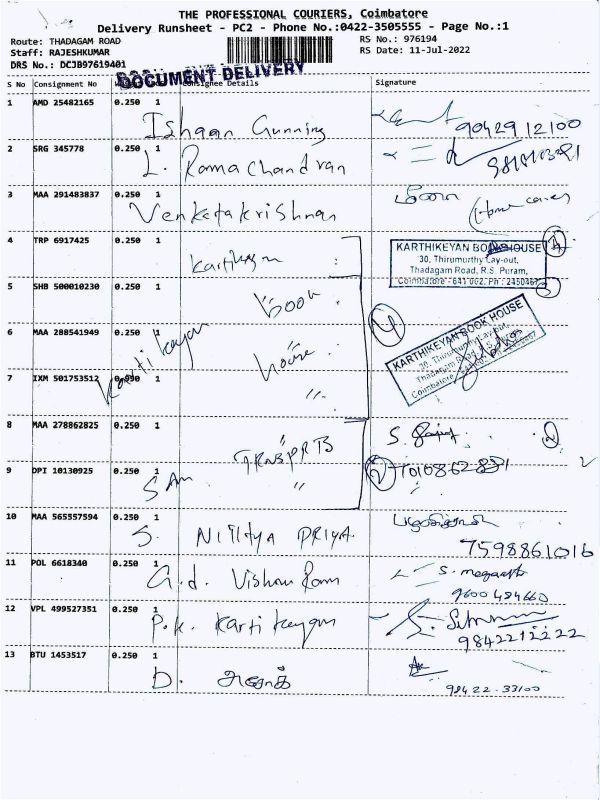 THE PROFESSIONAL COURIERS, Coimbatore
Delivery Runsheet - PC2 - Phone No.:0422-3505555 - Page No.:1
Route: THADAGAM ROAD
RS No.: 976194
Staff: RAJESHKUMAR
RS Date: 11-Jul-2022
DRS No.: DCJB97619401
DOCUMENT DELIVERY
S No Consignment No Consignee Details Signature
1 AMD 25482165 0.250 1
Ishaan Gunning
9042912100
2 SRG 345778 0.250 1
L. Ramachandran
3 MAA 291483837 0.250 1
Venketakrishnan
4 TRP 6917425 0.250 1
Kartikeyan
KARTHIKEYAN BOOK HOUSE
30, Thirumurthy Lay-out,
Thadagam Road, R.S. Puram,
Coimbatore - 641 002. Ph : 2450467
5 SHB 500010230 0.250 1
book
6 MAA 288541949 0.250 1
Kartikeyan house
KARTHIKEYAN BOOK HOUSE
30, Thirumurthy Lay-out,
Thadagam Road, R.S.
Coimbatore
7 IXM 501753512 0.090 1
"
8 MAA 278862825 0.250 1
9 DPI 10130925 0.250 1
"
10 MAA 565557594 0.250 1
S. Nithya PRIYA.
7598861016
11 POL 6618340 0.250 1
G.d. Vishnu Ram
9600484660
12 VPL 499527351 0.250 1
P.K. Kartikeyan
9842212222
13 BTU 1453517 0.250 1
D. அசோக்
98422-33100